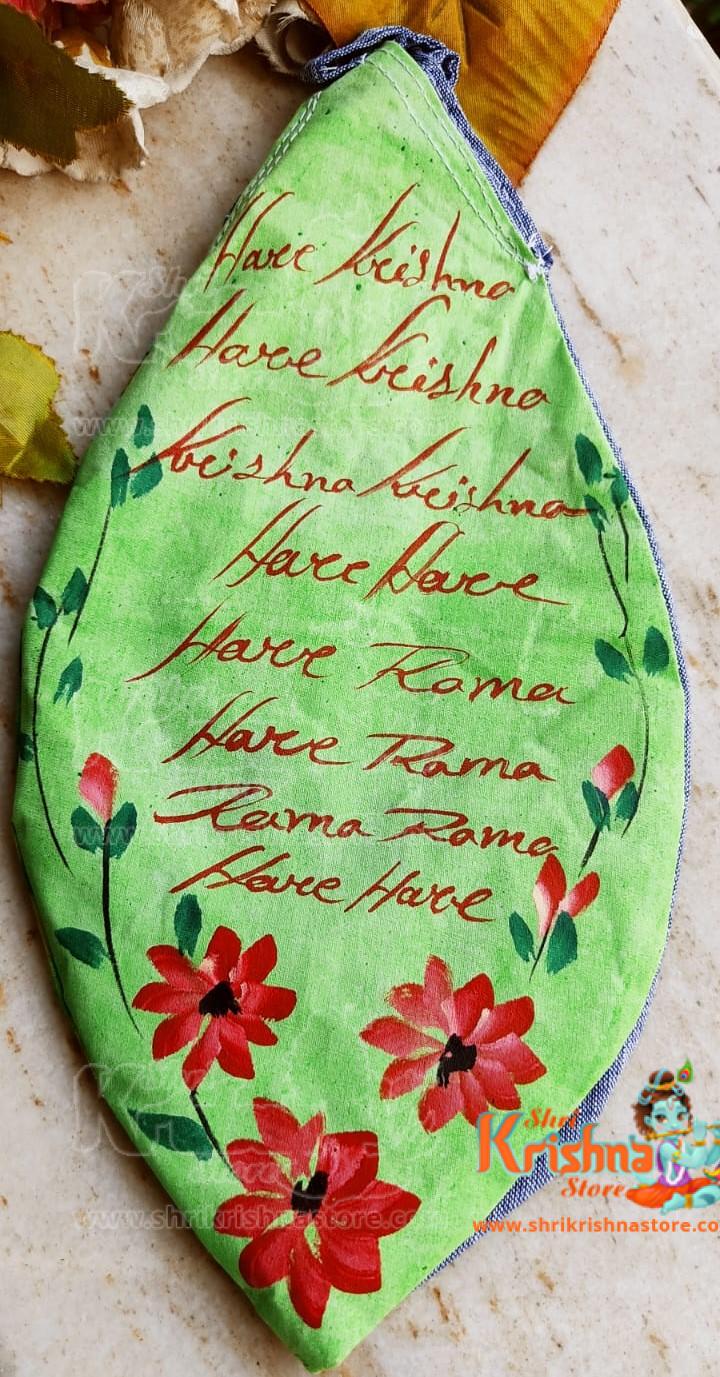 Hare Krishna
Hare Krishna
Krishna Krishna
Hare Hare
Hare Rama
Hare Rama
Rama Rama
Hare Hare
Shri
Krishna
Store
www.shrikrishnastore.co